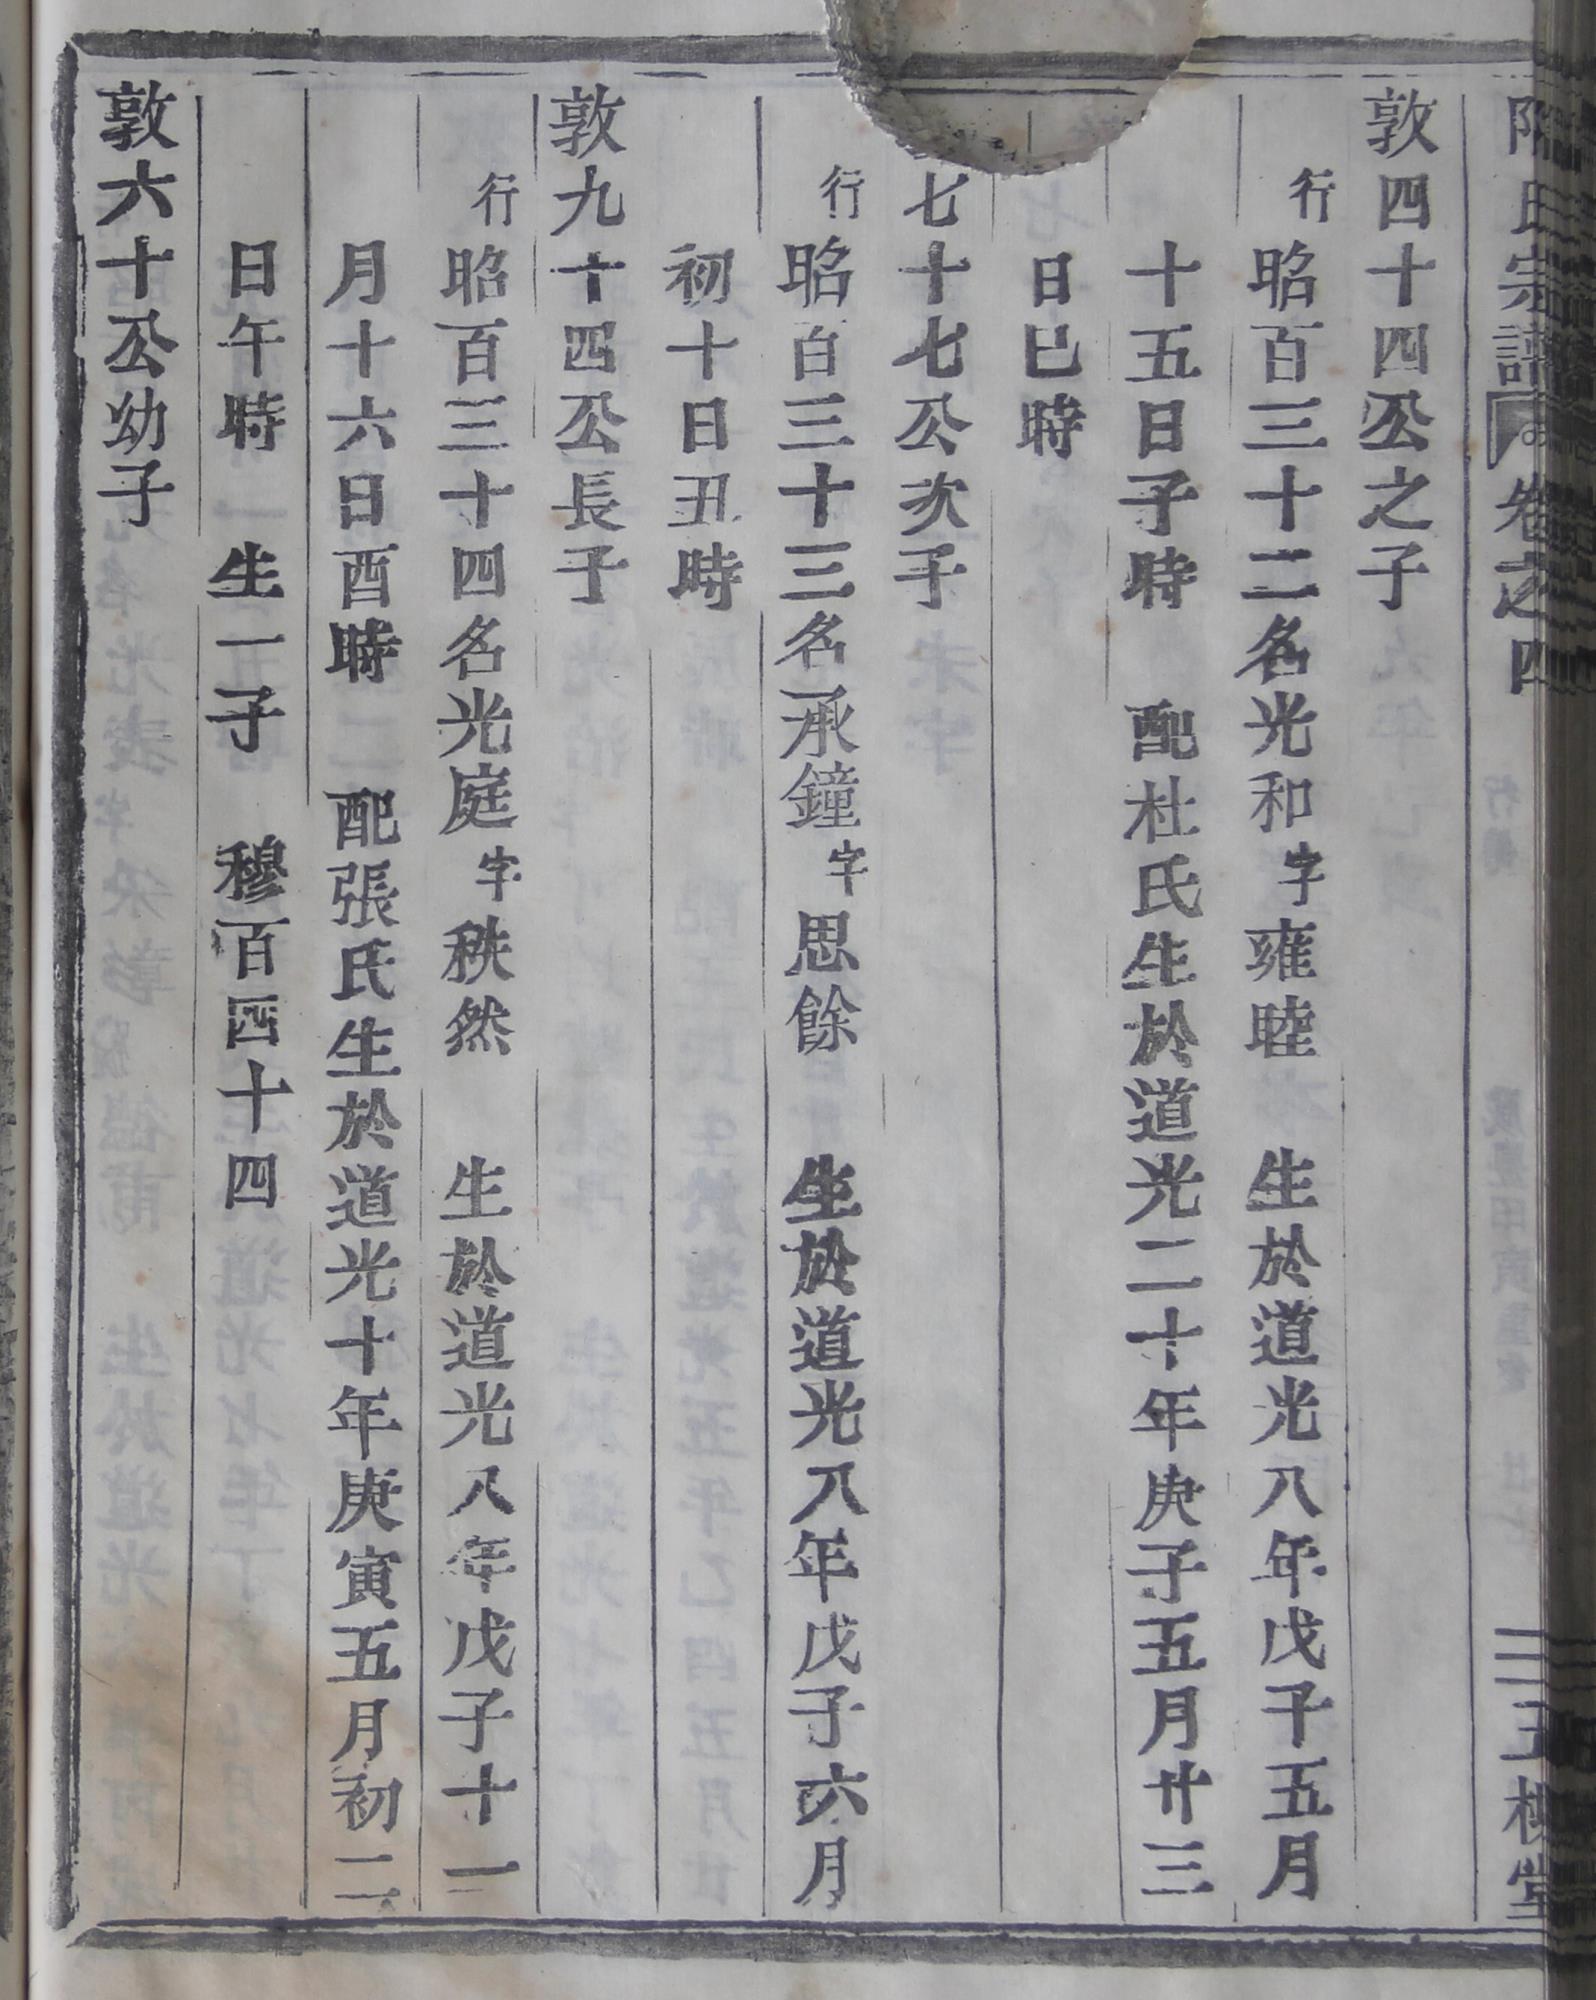 氏宗譜 卷之四
敦四十四公之子
行昭百三十二名光和字雍睦 生於道光八年戊子五月
十五日子時 配杜氏生於道光二十年庚子五月廿三
日巳時
七十七公次子
行昭百三十三名承鐘字思餘 生於道光八年戊子六月
初十日丑時
敦九十四公長子
行昭百三十四名光庭字秩然 生於道光八年戊子十一
月十六日酉時 配張氏生於道光十年庚寅五月初二
日午時 生一子 穆百四十四
敦六十公幼子